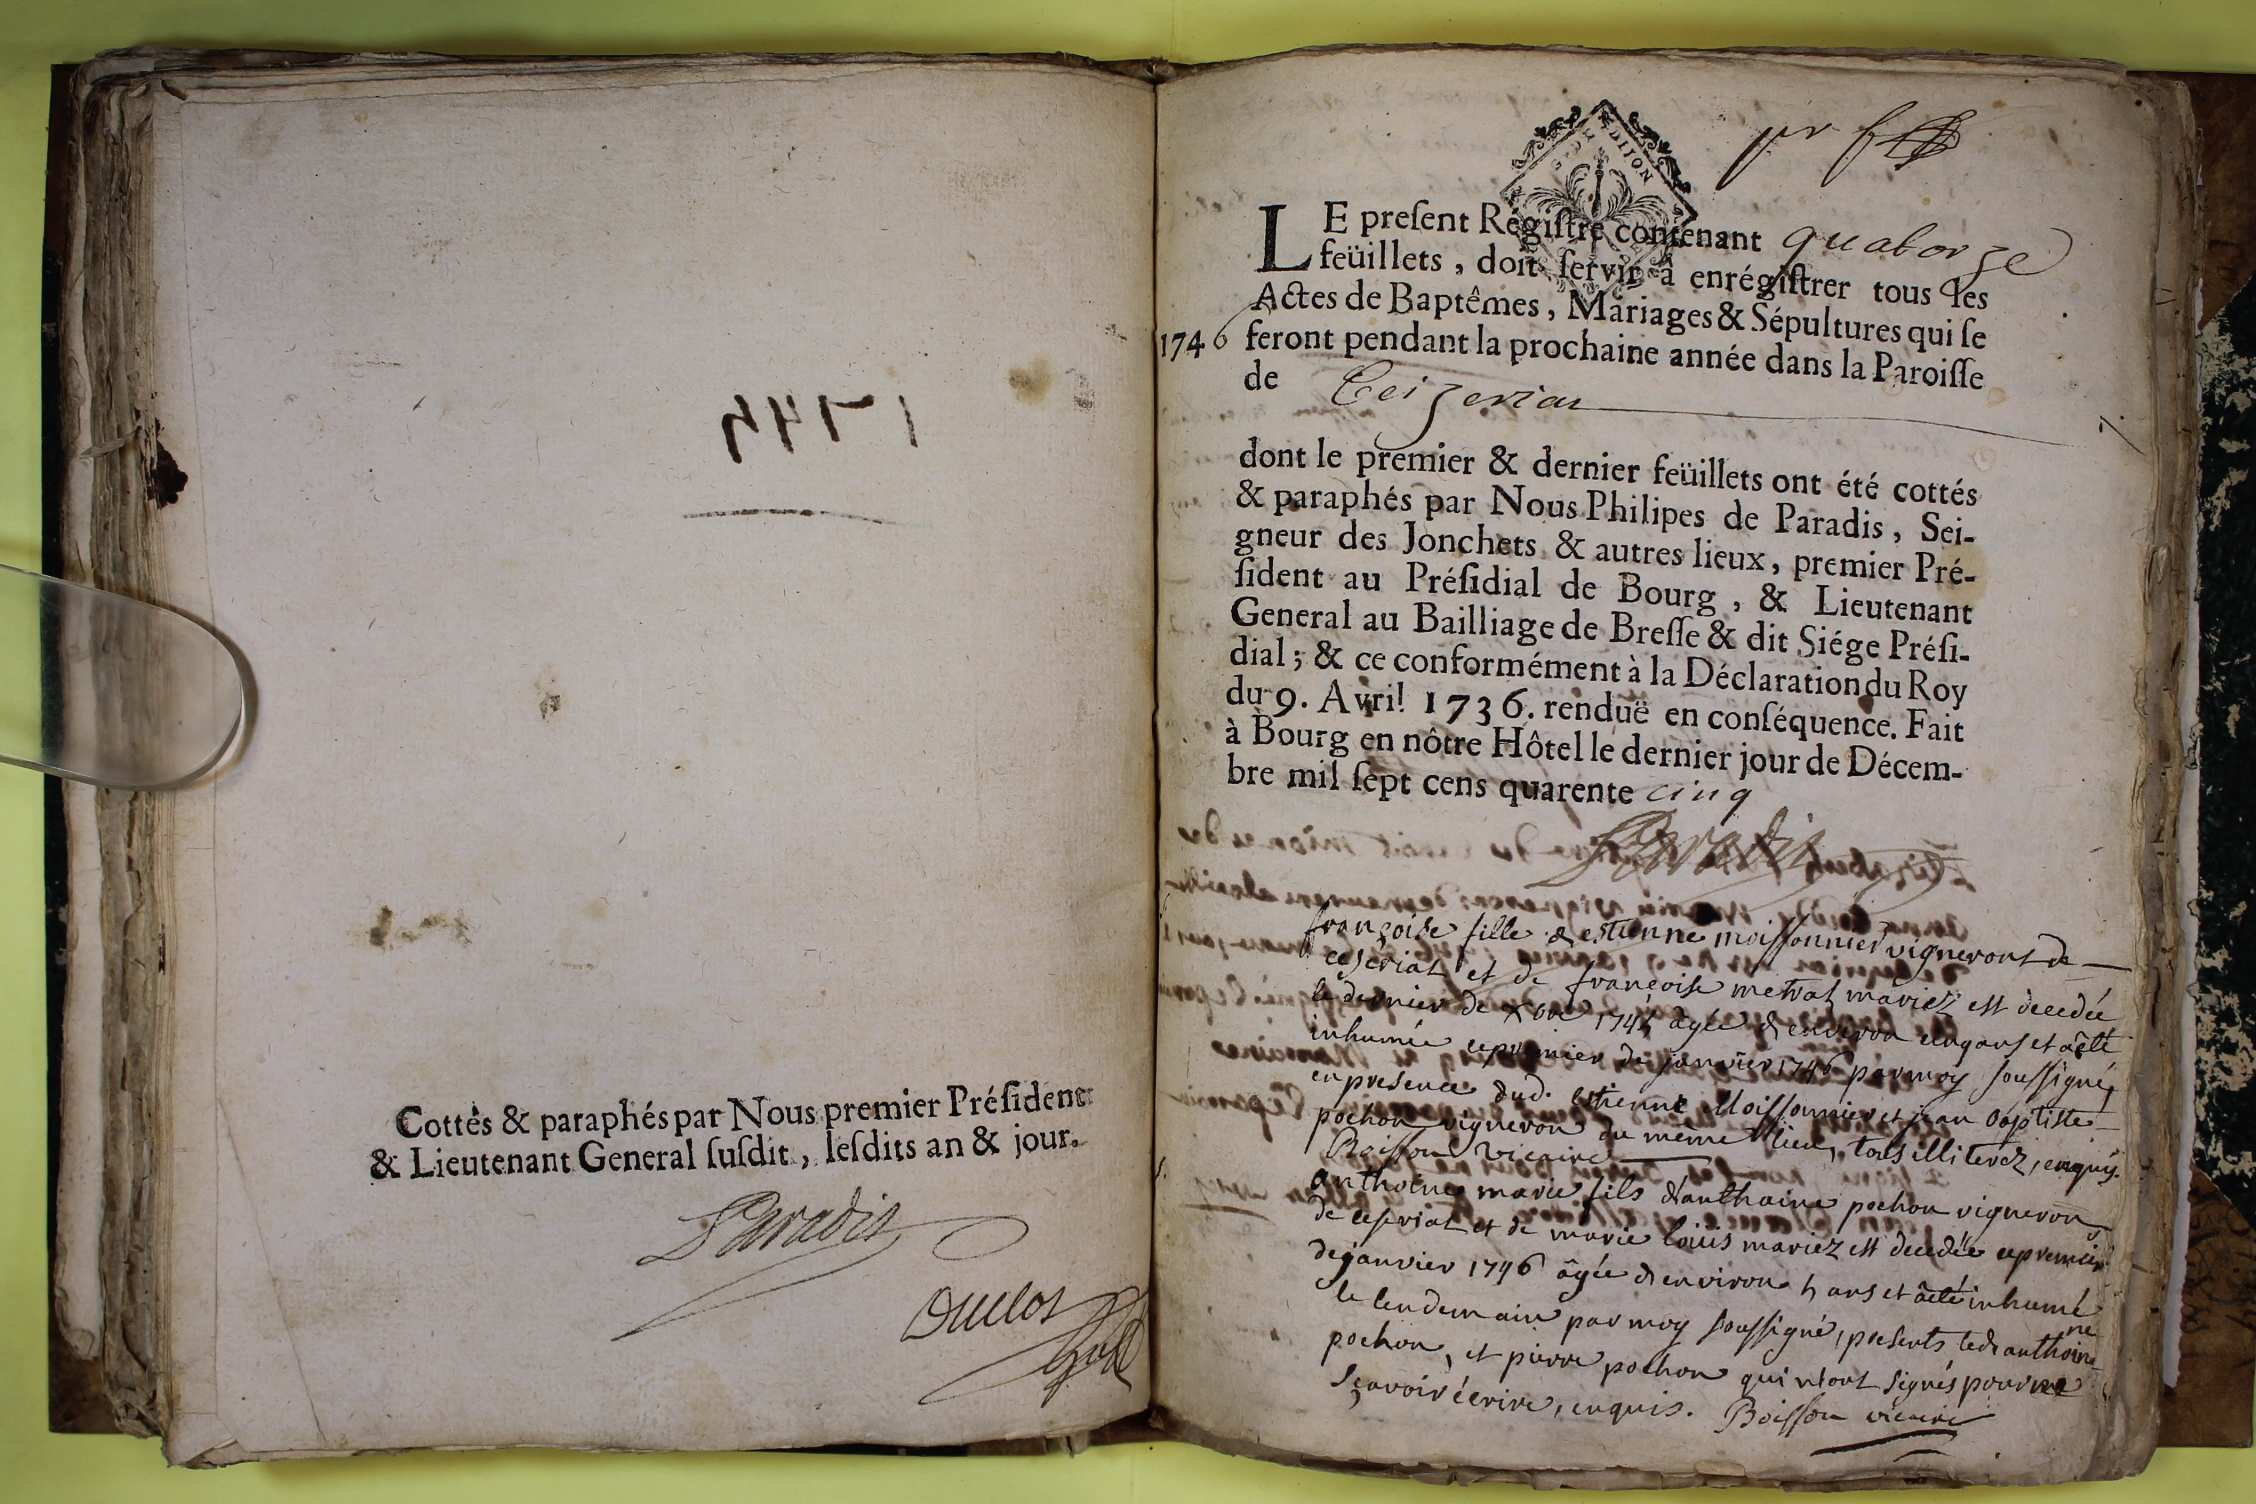 1745
Cottés & paraphés par Nous premier Président
& Lieutenant General suſdit, leſdits an & jour.
Paradis
Duclos
pr
DIJON
LE preſent Régiſtre contenant quatorze
feüillets, doit ſervir à enrégiſtrer tous les
Actes de Baptêmes, Mariages & Sépultures qui ſe
1746 feront pendant la prochaine année dans la Paroiſſe
de Ceizeriat
dont le premier & dernier feüillets ont été cottés
& paraphés par Nous Philipes de Paradis, Sei-
gneur des Jonchets & autres lieux, premier Pré-
ſident au Préſidial de Bourg, & Lieutenant
General au Bailliage de Breſſe & dit Siége Préſi-
dial; & ce conformément à la Déclaration du Roy
du 9. Avril 1736. renduë en conſéquence. Fait
à Bourg en nôtre Hôtel le dernier jour de Décem-
bre mil ſept cens quarente cinq
Paradis
françoise fille d estienne moissonnier vigneront de
ceseriat et de françoise metrat mariez est decedée
le dernier de xbre 1745 âgée d environ cinq ans et a été
inhumée ce premier de janvier 1746 par moy soussigné,
en presence dud. estienne Moissonnier et jean baptiste
pochon vigneron du même lieu, tous illiterez, enquis.
Boisson vicaire
anthoine marie fils d'anthoine pochon vigneron
de ceseriat et de marie loüis mariez est decedée ce premier
de janvier 1746 âgée d environ 5 ans et a été inhumé
le lendemain par moy soussigné, presents led anthoine
pochon, et pierre pochon qui n'ont signés pour ne
sçavoir écrire, enquis. Boisson vicaire